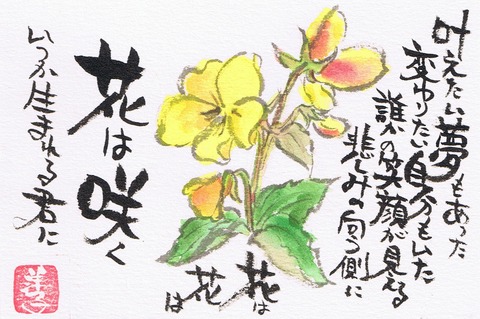 叶えたい夢もあった
変わりたい自分もいた
誰かの笑顔が見える
悲しみの向う側に
花は
花は
花は咲く
いつか生まれる君に